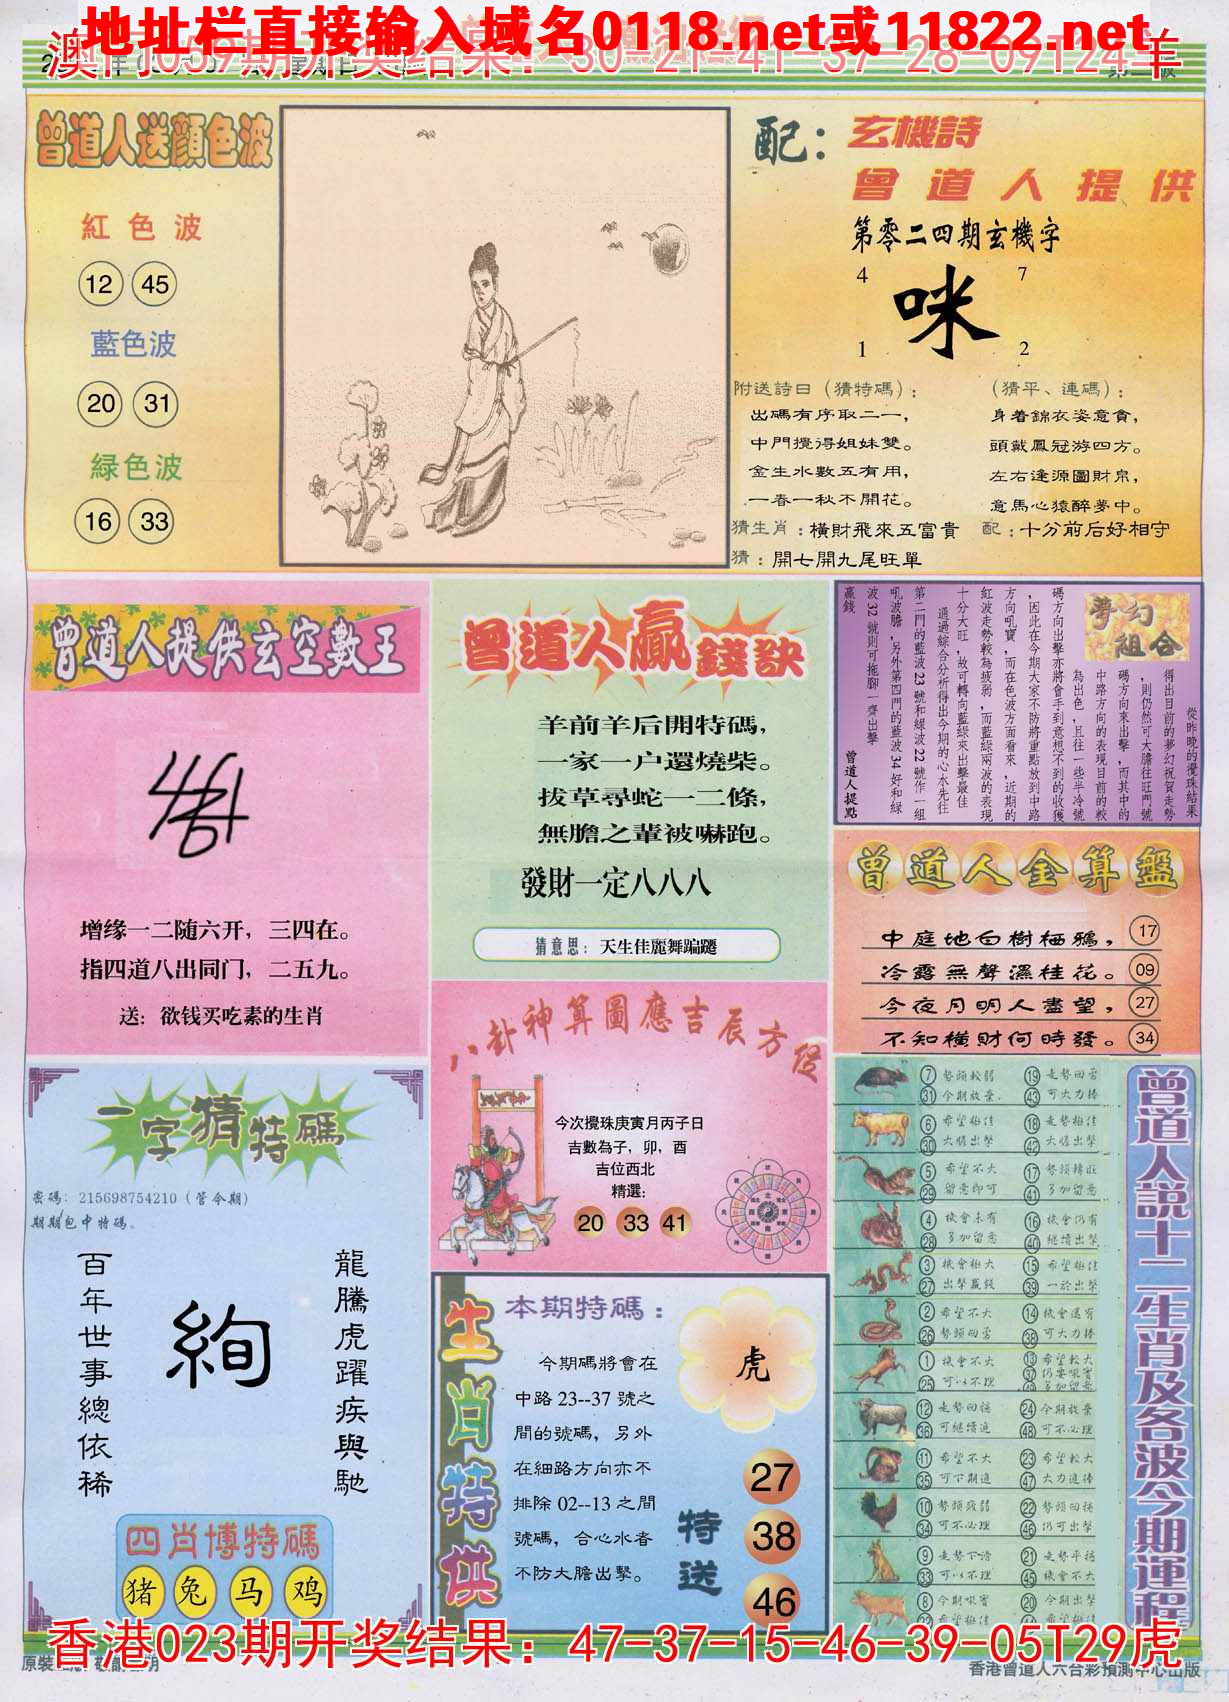 地址栏直接输入域名0118.net或11822.net
澳门059期开奖结果：30-21-41-37-28-09T24羊
曾道人送顏色波
紅色波
12 45
藍色波
20 31
緑色波
16 33
配：玄機詩
曾道人提供
第零二四期玄機字
4 7
咪
1 2
附送詩日（猜特碼）：
出碼有序取二一，
中門攪得姐妹雙。
金生水數五有用，
一春一秋不開花。
（猜平、連碼）：
身着錦衣姿意貪，
頭戴鳳冠游四方。
左右逢源圖財帛，
意馬心猿醉夢中。
猜生肖：橫財飛來五富貴 配：十分前后好相守
猜：開七開九尾旺單
曾道人提供玄空數王
增缘一二随六开，三四在。
指四道八出同门，二五九。
送：欲钱买吃素的生肖
曾道人贏錢訣
羊前羊后開特碼，
一家一户還燒柴。
拔草尋蛇一二條，
無膽之輩被嚇跑。
發財一定八八八
猜意思：天生佳麗舞蹁躚
夢幻組合
從昨晚的攪珠結果
得出目前的夢幻祝賀走勢
，則仍然可大膽往旺門號
碼方向來出擊，而其中的
中路方向的表現目前的較
為出色，且往一些半冷號
碼方向出擊亦將會手到意想不到的收獲
，因此在今期大家不防將重點放到中路
方向吼寶，而在色波方面看來，近期的
紅波走勢較為疲弱，而藍緑兩波的表現
十分大旺，故可轉向藍緑來出擊最佳
通過綜合分析得出今期的心水先往
第二門的藍波23號和緑波22號作一組
吼波膽，另外第四門的藍波34好和緑
波32號則可拖腳一齊出擊
贏錢
曾道人提點
曾道人金算盤
中庭地白樹栖鴉， 17
冷露無聲濕桂花。 09
今夜月明人盡望， 27
不知橫財何時發。 34
八卦神算圖應吉辰方位
今次攪珠庚寅月丙子日
吉數為子，卯，酉
吉位西北
精選：
20 33 41
一字猜特碼
密碼：215698754210（管今期）
期期包中特碼。
百年世事總依稀
絢
龍騰虎躍疾與馳
四肖博特碼
猪 兔 马 鸡
生肖特供
本期特碼：
虎
今期碼將會在
中路23--37號之
間的號碼，另外
在細路方向亦不
排除02--13之間
號碼，合心水者
不防大膽出擊。
特送
27
38
46
曾道人説十二生肖及各波今期運程
7 勢頭較弱 19 走勢回雷
31 今期放棄 43 可大力捧
6 希望極佳 18 走勢極佳
30 大膽出擊 42 大膽出擊
5 希望不大 17 勢頭轉旺
29 留意即可 41 多加留意
4 機會未有 16 機會仍有
28 多加留意 40 繼續出擊
3 機會極大 15 希望極佳
27 出擊贏錢 39 一於出擊
2 希望不大 14 機會還有
26 勢頭回雷 38 可大力捧
1 機會不大 13 希望較大
25 可以不理
12 走勢回穩 24 今期放棄
36 可繼續追 48 可不必理
11 希望不大 23 希望較大
35 可下期追 47 大力追捧
10 勢頭疲弱 22 勢頭回穩
34 可不必理 46 仍可出擊
9 走勢下滑 21 走勢平穩
33 可以不理 45 機會不大
8 今期吼實 20 今期出擊
香港023期开奖结果：47-37-15-46-39-05T29虎
香港曾道人六合彩預測中心出版